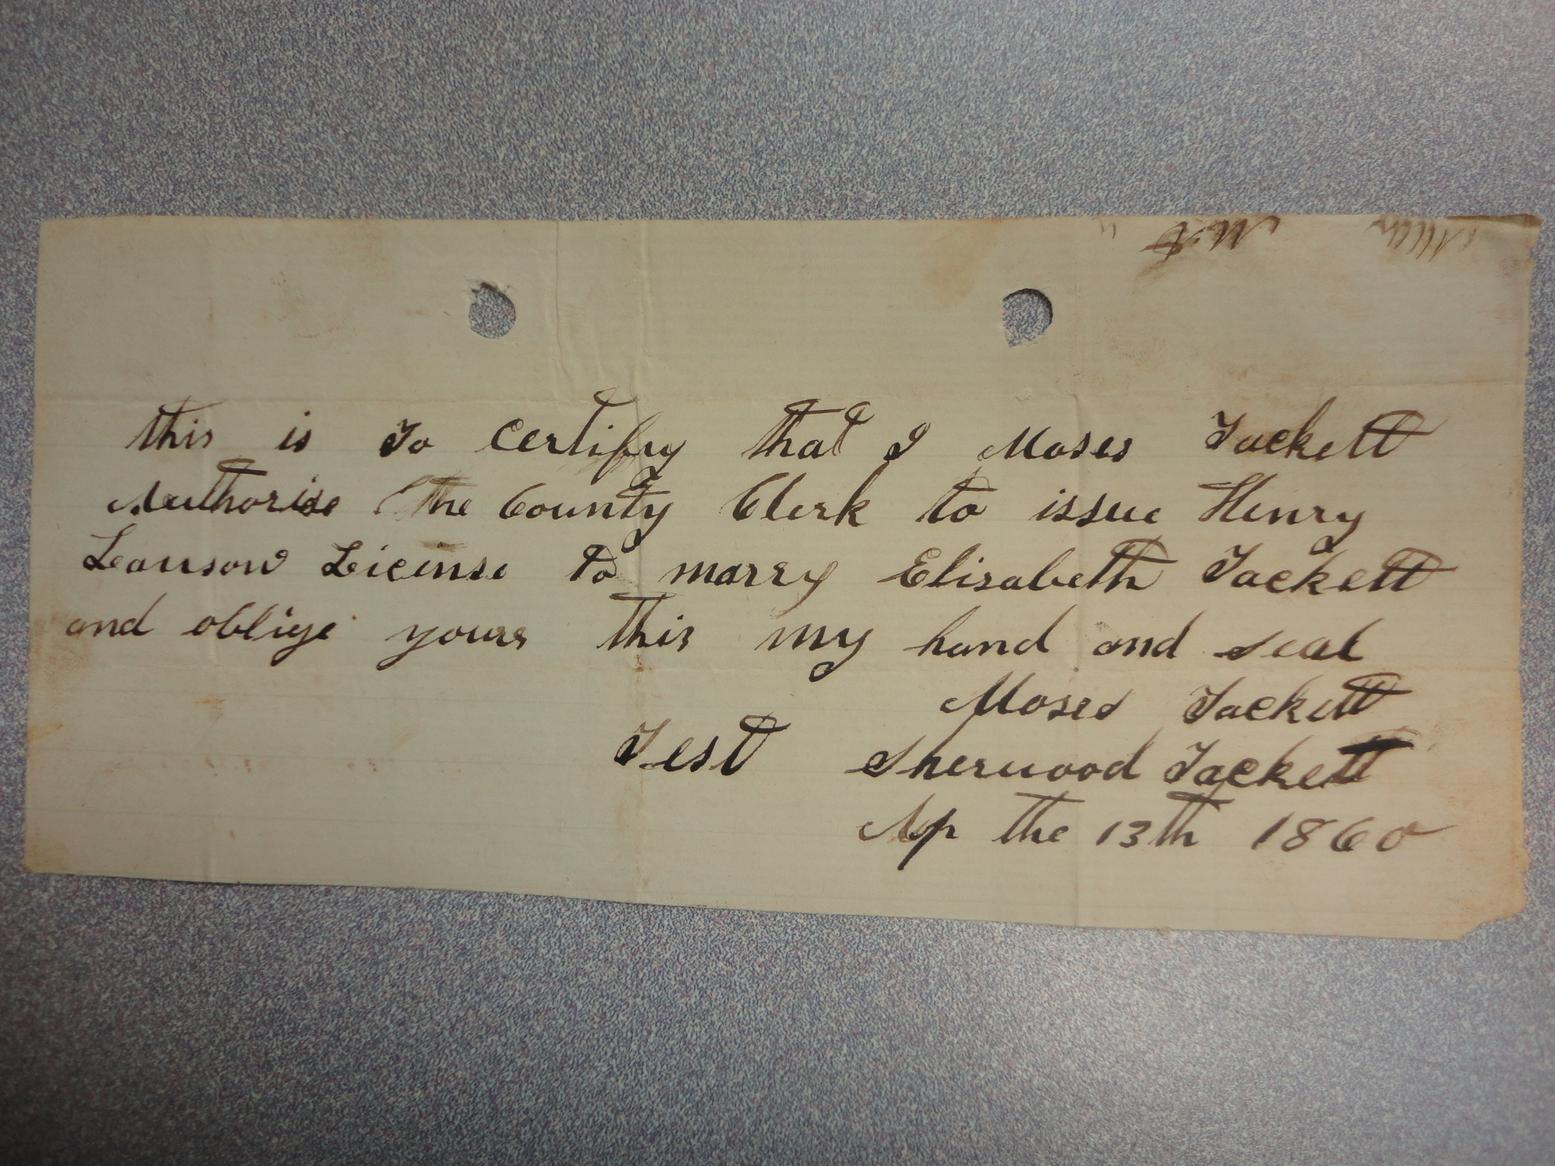 this is To certify that I Moses Tackett
Authorise the County Clerk to issue Henry
Lawson License to marry Elisabeth Tackett
and oblige yours this my hand and seal
Moses Tackett
Test Sherwood Tackett
Ap the 13th 1860